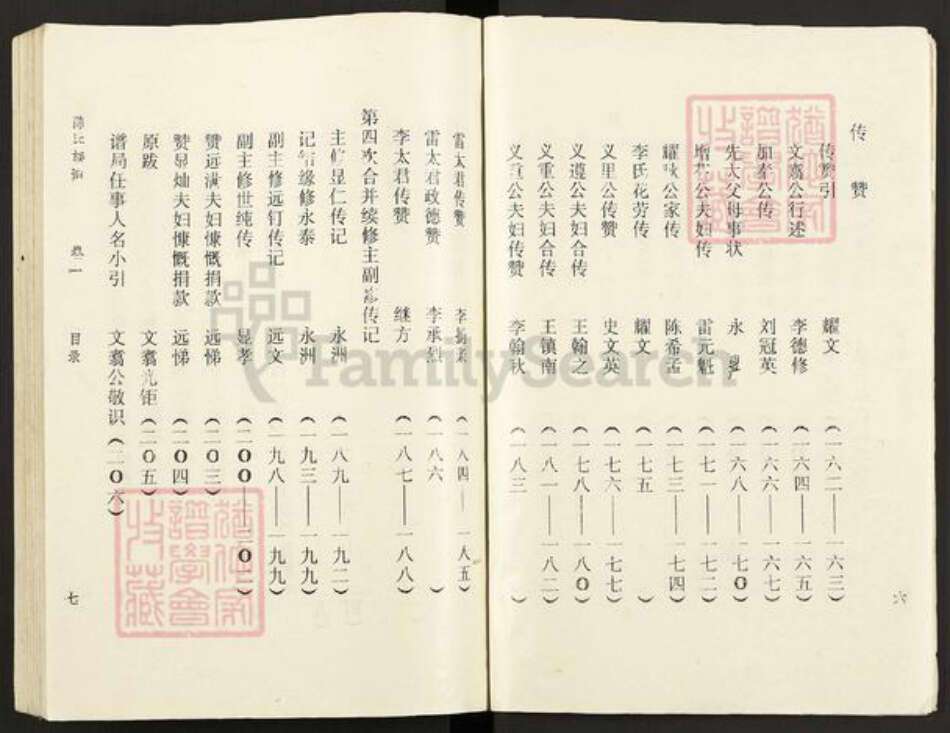 传赞
传赞引 耀文 （一六二——一六三）
文翥公行述 李德修 （一六四——一六五）
加泰公传 刘冠英 （一六六——一六七）
先太父母事状 永 （一六八——一七〇）
公夫妇传 雷元魁 （一七一——一七二）
耀 公家传 陈希孟 （一七三——一七四）
李氏花芳传 耀文 （一七五 ）
义里公传赞 史文英 （一七六——一七七）
义遵公夫妇合传 王翰之 （一七八——一八〇）
义重公夫妇合传 王镇南 （一八一——一八二）
义 公夫妇传赞 李翰秋 （一八三 ）
六
雷太君传赞 李 （一八四——一八五）
雷太君政德赞 李承烈 （一八六 ）
李太君传赞 继方 （一八七——一八八）
第四次合并续修主副 传记
主修显仁传记 永洲 （一八九——一九二）
记 缘修永泰 永洲 （一九三——一九九）
副主修远钉传记 远文 （一九八——一九九）
副主修世纯传 显孝 （二〇〇——二〇二）
赞远满夫妇慷慨捐款 远悌 （二〇三）
赞显灿夫妇慷慨捐款 远悌 （二〇四）
原跋 文翥光钜 （二〇五）
谱局任事人名小引 文翥公敬识 （二〇六）
卷二 目录 七
FamilySearch